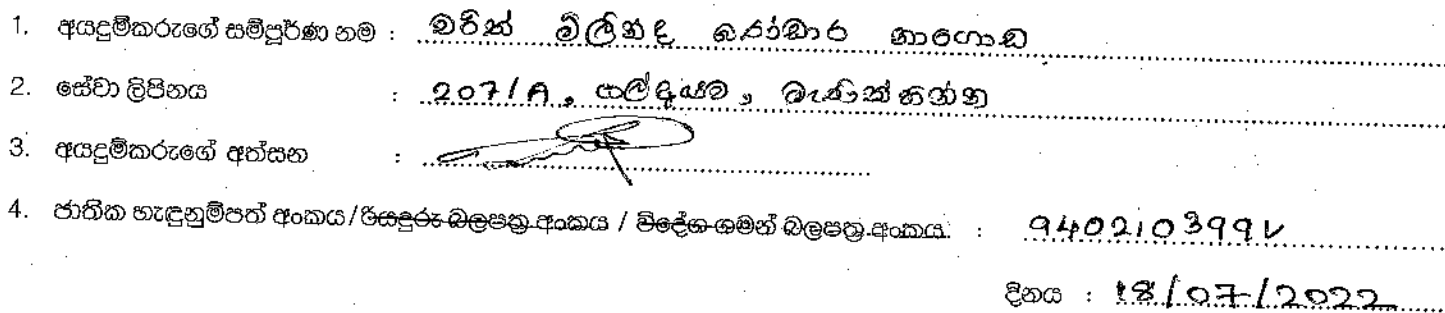 1. අයදුම්කරුගේ සම්පූර්ණ නම : චරිත් මිලින්ද බණ්ඩාර නාගොඩ
2. සේවා ලිපිනය : 207/A, ගල්දෑයම, මැණික්හින්න
3. අයදුම්කරුගේ අත්සන :
4. ජාතික හැඳුනුම්පත් අංකය/රියදුරු බලපත්‍ර අංකය / විදේශ ගමන් බලපත්‍ර අංකය : 940210399V
දිනය : 18/07/2022